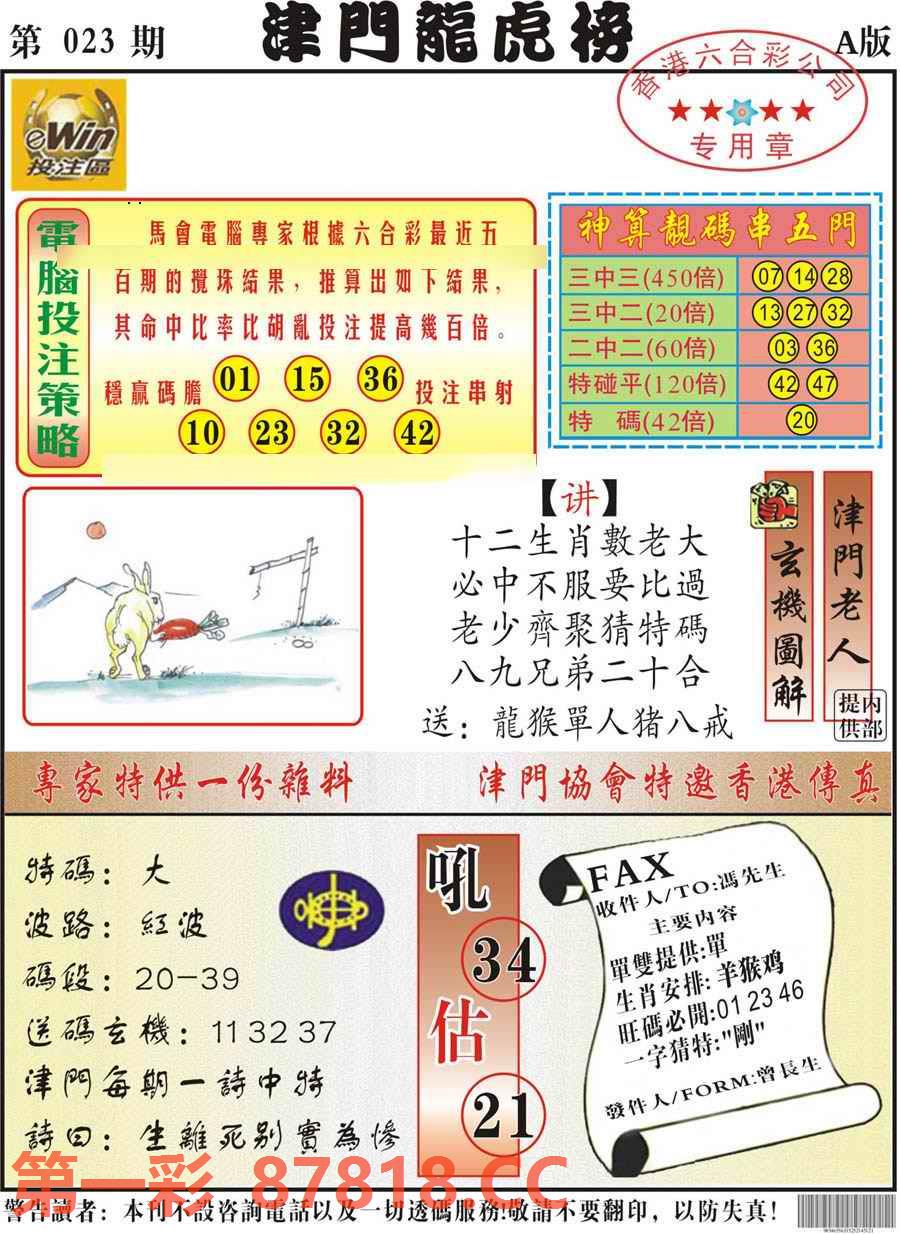 第 023 期
津門龍虎榜
A版
香港六合彩公司
专用章
eWin
投注區
電腦投注策略
馬會電腦專家根據六合彩最近五
百期的攪珠結果，推算出如下結果，
其命中比率比胡亂投注提高幾百倍。
穩贏碼膽 01 15 36 投注串射
10 23 32 42
神算靚碼串五門
三中三(450倍) 07 14 28
三中二(20倍) 13 27 32
二中二(60倍) 03 36
特碰平(120倍) 42 47
特 碼(42倍) 20
【讲】
十二生肖數老大
必中不服要比過
老少齊聚猜特碼
八九兄弟二十合
送：龍猴單人猪八戒
玄機圖解
津門老人
內部提供
專家特供一份雜料
津門協會特邀香港傳真
特碼：大
波路：紅波
碼段：20-39
送碼玄機：11 32 37
津門每期一詩中特
詩曰：生離死别實為慘
吼
34
估
21
FAX
收件人/TO:馮先生
主要内容
單雙提供:單
生肖安排:羊猴鸡
旺碼必開:01 23 46
一字猜特:"剛"
發件人/FORM:曾長生
第一彩 87818.CC
警告讀者：本刊不設咨詢電話以及一切透碼服務!敬請不要翻印，以防失真！